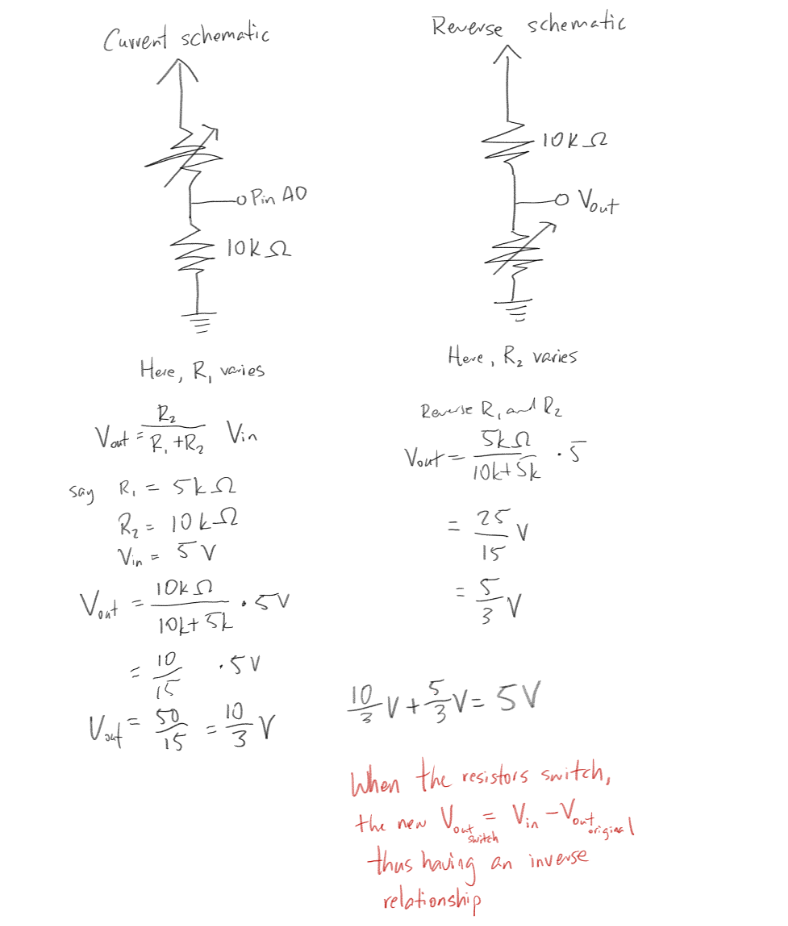 Current schematic
Pin A0
10kΩ
Here, R₁ varies
Vout = R₂ / R₁ + R₂ Vin
say R₁ = 5kΩ
R₂ = 10kΩ
Vin = 5V
Vout = 10kΩ / 10k + 5k · 5V
= 10 / 15 · 5V
Vout = 50 / 15 = 10 / 3 V
Reverse schematic
10kΩ
Vout
Here, R₂ varies
Reverse R₁ and R₂
Vout = 5kΩ / 10k + 5k · 5
= 25 / 15 V
= 5 / 3 V
10 / 3 V + 5 / 3 V = 5V
When the resistors switch,
the new Vout switch = Vin - Vout original
thus having an inverse
relationship